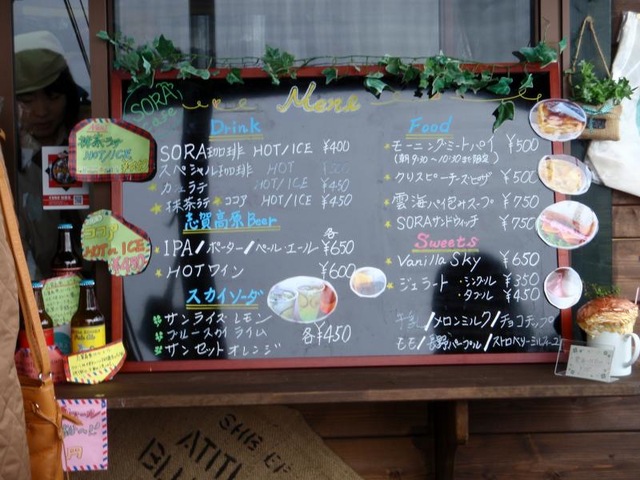 SORA
Cafe
Menu
Drink
SORA珈琲 HOT/ICE ¥400
スペシャル珈琲 HOT
カフェラテ HOT/ICE ¥450
抹茶ラテ ココア HOT/ICE ¥450
志賀高原Beer
各
IPA/ポーター/ペール・エール ¥650
HOTワイン ¥600
スカイソーダ
サンライズ レモン
ブルースカイ ライム
サンセット オレンジ
各¥450
Food
モーニング・ミートパイ ¥500
(朝9:30〜10:30まで限定)
クリスピーチーズピザ ¥500
雲海パイ包みスープ ¥750
SORAサンドウィッチ ¥750
Sweets
Vanilla Sky ¥650
ジェラート ・シングル ¥350
・ダブル ¥450
牛乳/メロンミルク/チョコチップ
もも/長野パープル/ストロベリーミルフィーユ
抹茶ラテ
HOT/ICE
ココア
HOT or ICE
¥450
円
SHB EP
ATITL
BLU